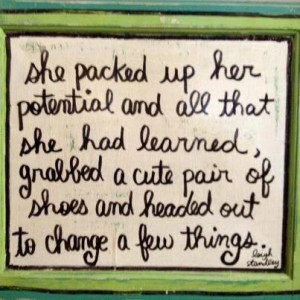 she packed up her
potential and all that
she had learned,
grabbed a cute pair of
shoes and headed out
to change a few things.
leigh
standley